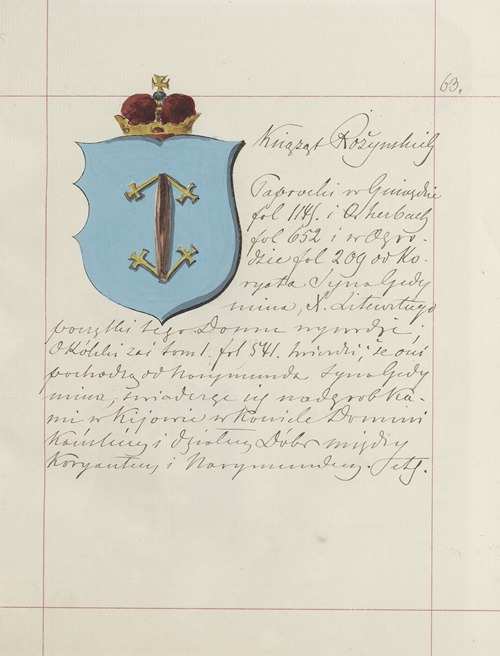 63.
Książąt Rożynskich
Paprocki w Gniazdzie
fol 1141. i O herbach
fol 652 i w Ogro-
dzie fol 209 od Ko-
ryata Syna Gedy
mina, X. Litewskiego
początki tego Domu wywodzi;
Okolski zaś tom 1. fol 541. twierdzi, że oni
pochodzą od Narymunda syna Gedy
mina, świadcząc się nadgrobka-
mi w Kijowie w Kosciele Domini
kańskim i działem Dóbr między
Koryantem i Narymundem.